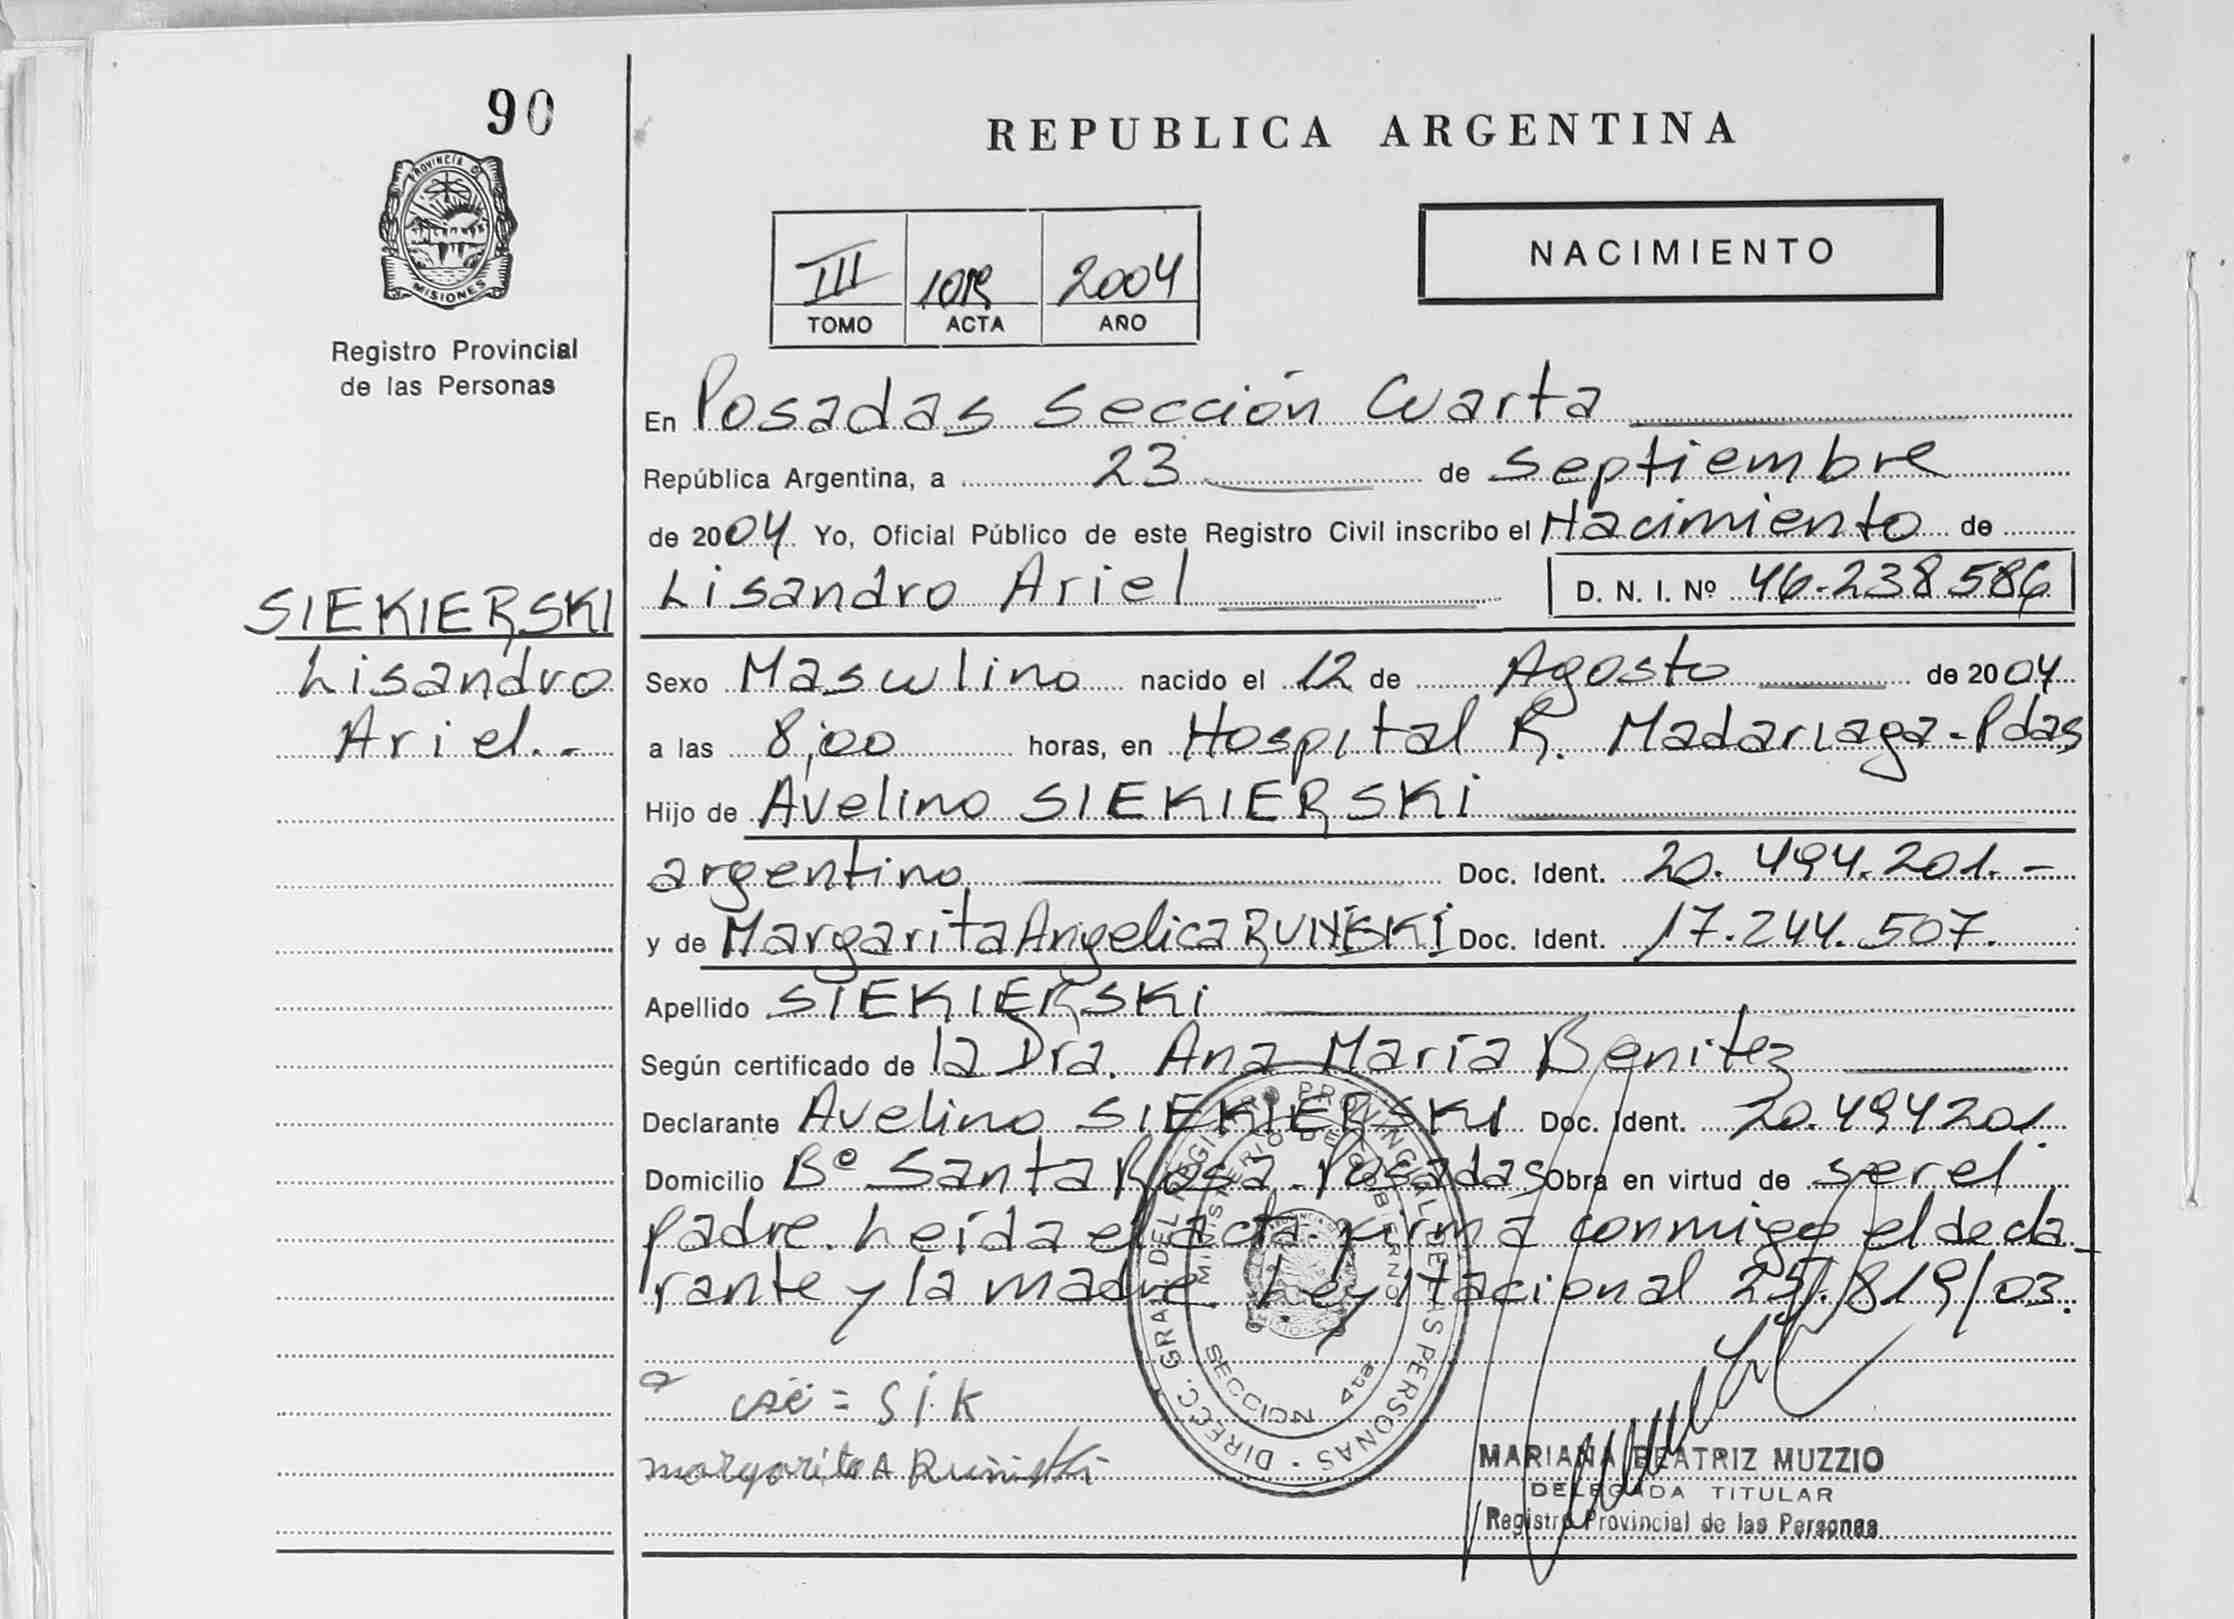 90
PROVINCIA DE
MISIONES
Registro Provincial
de las Personas
SIEKIERSKI
Lisandro
Ariel.-
REPUBLICA ARGENTINA
NACIMIENTO
III 2004
TOMO ACTA AÑO
En Posadas Sección Cuarta
República Argentina, a 23 de Septiembre
de 2004 Yo, Oficial Público de este Registro Civil inscribo el Nacimiento de
Lisandro Ariel D. N. I. Nº 46.238.586
Sexo Masculino nacido el 12 de Agosto de 2004
a las 8,00 horas, en Hospital R. Madariaga-Pdas
Hijo de Avelino SIEKIERSKI
argentino Doc. Ident. 20.494.201.-
y de Margarita Angelica Doc. Ident. 17.244.507.
Apellido SIEKIERSKI
Según certificado de la Dra. Ana María Benitez
Declarante Avelino SIEKIERSKI Doc. Ident. 20.494201
Domicilio Bº Santa Rosa - Posadas Obra en virtud de ser el
padre. Leída el acta firma conmigo el decla-
rante y la madre. Ley Nacional 25.819/03.
DIRECC. GRAL DEL REGISTRO PROVINCIAL DE LAS PERSONAS
MINISTERIO DE GOBIERNO
SECCION 4ta.
S i K
margarita A
MARIANA BEATRIZ MUZZIO
DELEGADA TITULAR
Registro Provincial de las Personas